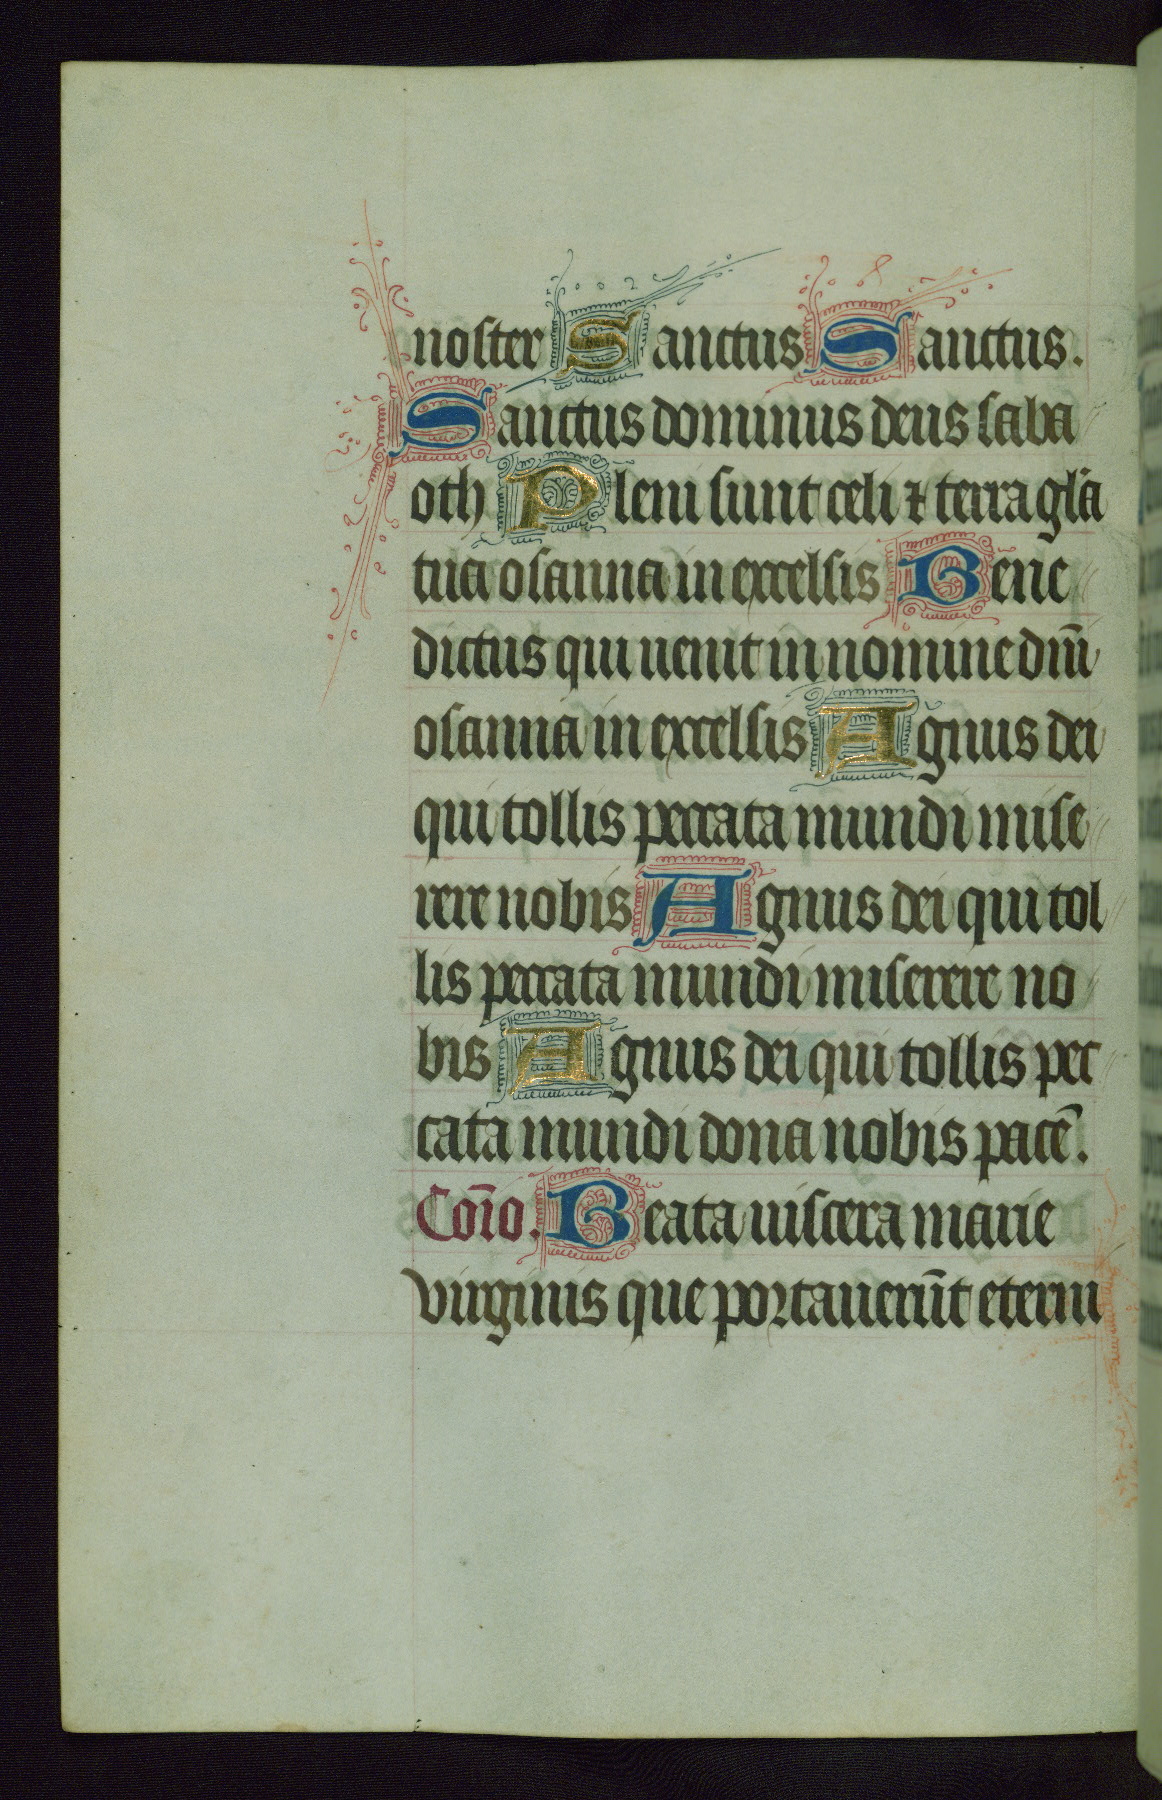 noster Sanctus Sanctus.
Sanctus dominus deus saba
oth Pleni sunt celi ⁊ terra gl̄a
tua osanna in excelsis Bene
dictus qui uenit in nomine dn̄i
osanna in excelsis Agnus dei
qui tollis peccata mundi mise
rere nobis Agnus dei qui tol
lis peccata mundi miserere no
bis Agnus dei qui tollis pec
cata mundi dona nobis pacē.
Cōīo. Beata uiscera marie
virginis que portauerūt eterni